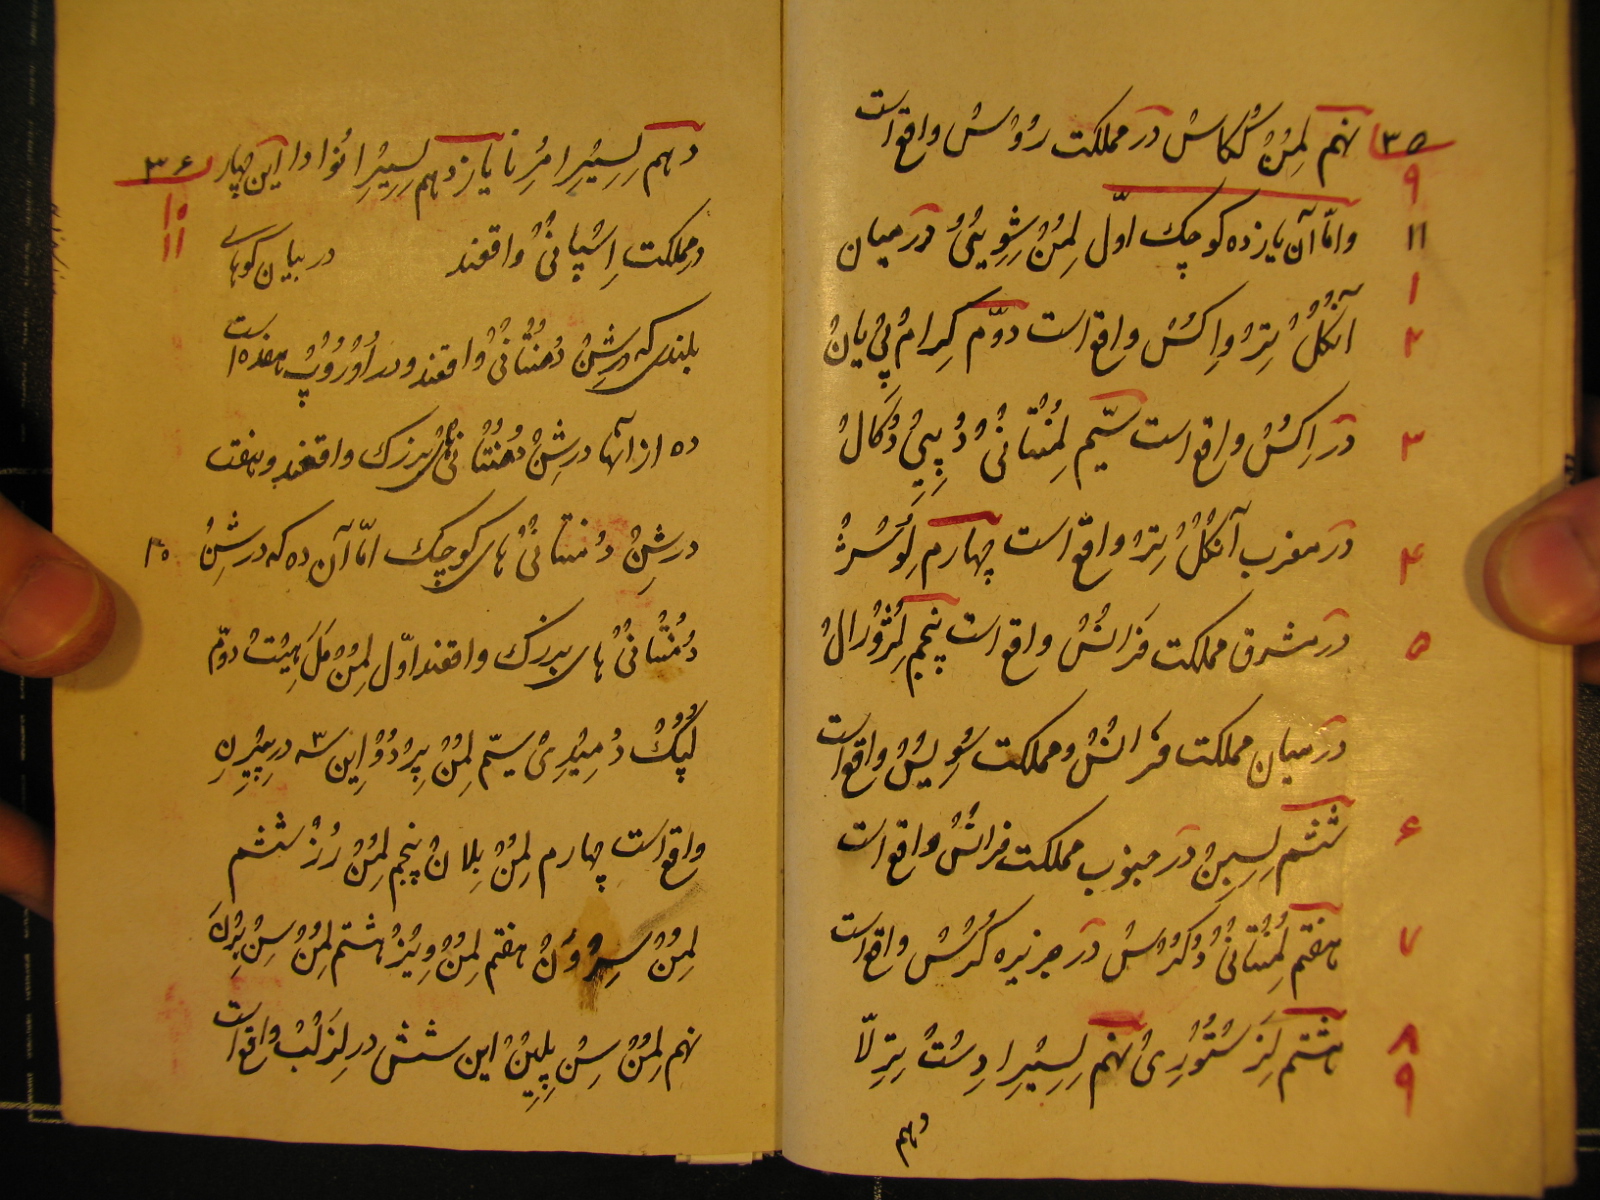 ۳۵
نهم لِمُنْ کُکاسْ در مملکت رؤسْ واقع است
۹
وامّا آن یازده کوچک اوّل لِمُنْ شِویُتیُ در میان
۱۱
۱
آنکُلُ تِرْ و اِکُسْ واقع است دوّم کِرامْ پیْ یانْ
۲
در اِکُسْ واقع است سیّم لِمُنْتانیُ دُ پِییِ دُکالْ
۳
در مغرب آنکُلُ تِرْ واقع است چهارم لِوُسْژْ
۴
در مشرق مملکت فَرانسْ واقع است پنجم لِژْوُرالْ
۵
در میان مملکت فرانسْ و مملکت سُوِیسْ واقع است
ششم لِسِوِنْ در جنوب مملکت فرانسْ واقع است
۶
هفتم لِمُنْتانیُ دُکُرْسْ در جزیره کُرْسْ واقع است
۷
هشتم لِزَسْتُوریُ نهم لِسیُرا دِسْتْ تِرِلّا
۸
۹
دهم
۳۶
دهم لِسیُرا مُرِنا یازدهم لِسیُرا نُوادا این چهار
۱۰
۱۱
در مملکت اِسْپانیُ واقعند در بیان کوهای
بلندی که در شِنْ دُمُنْتانیُ واقعند و در اُوُرُوپْ هفده است
ده از آنها در شِنْ دُمُنْتانیُ های بزرک واقعند و هفت
در شِنْ دُ مُنتانیُ های کوچک امّا آن ده که در شِنْ
دُ مُنْتانیُ های بزرک واقعند اوّل لِمُنْ مَلَهیْتْ دوّم
لُپِکْ دُ میُدیْ سیّم لِمُنْ پِرْدُوْ این ۳ سه در پیِرِنِ
واقع است چهارم لِمُنْ بِلانْ پنجم لِمُنْ رُزْ ششم
لِمُنْ سِرْوَنْ هفتم لِمُنْ ویُزْ هشتم لِمُنْ سِنْ بِرْنَ
نهم لِمُنْ سِنْ پِلیُنْ این ششش در لِزَلْبْ واقع است